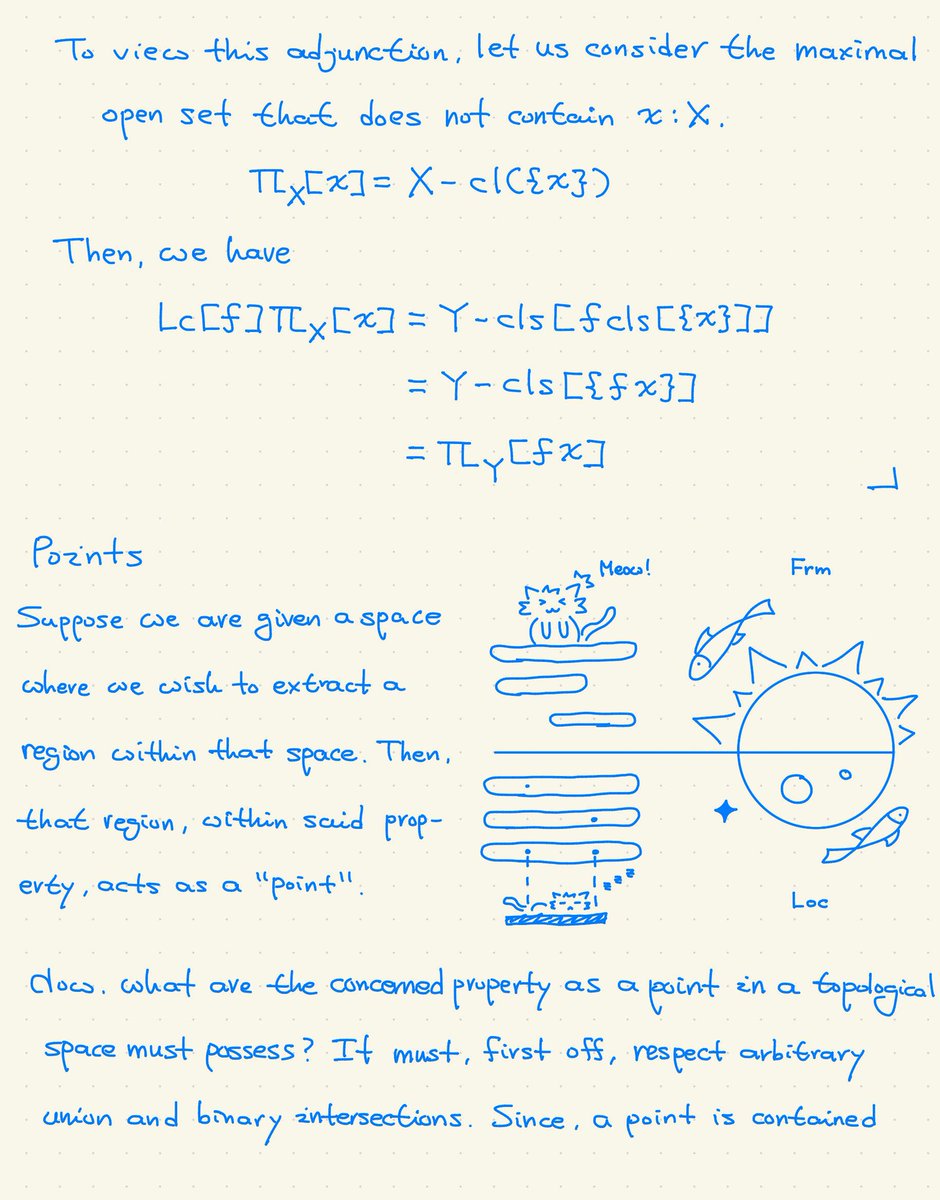 To view this adjunction, let us consider the maximal
open set that does not contain x:X.
π_X[x] = X - cl({x})
Then, we have
Lc[f]π_X[x] = Y - cls[fcls[{x}]]
= Y - cls[{fx}]
= π_Y[fx]
┘
Points
Suppose we are given a space
where we wish to extract a
region within that space. Then,
that region, within said prop-
erty, acts as a "point".
Meow!
Frm
zzz
Loc
docs. what are the concerned property as a point in a topological
space must possess? It must, first off, respect arbitrary
union and binary intersections. Since, a point is contained